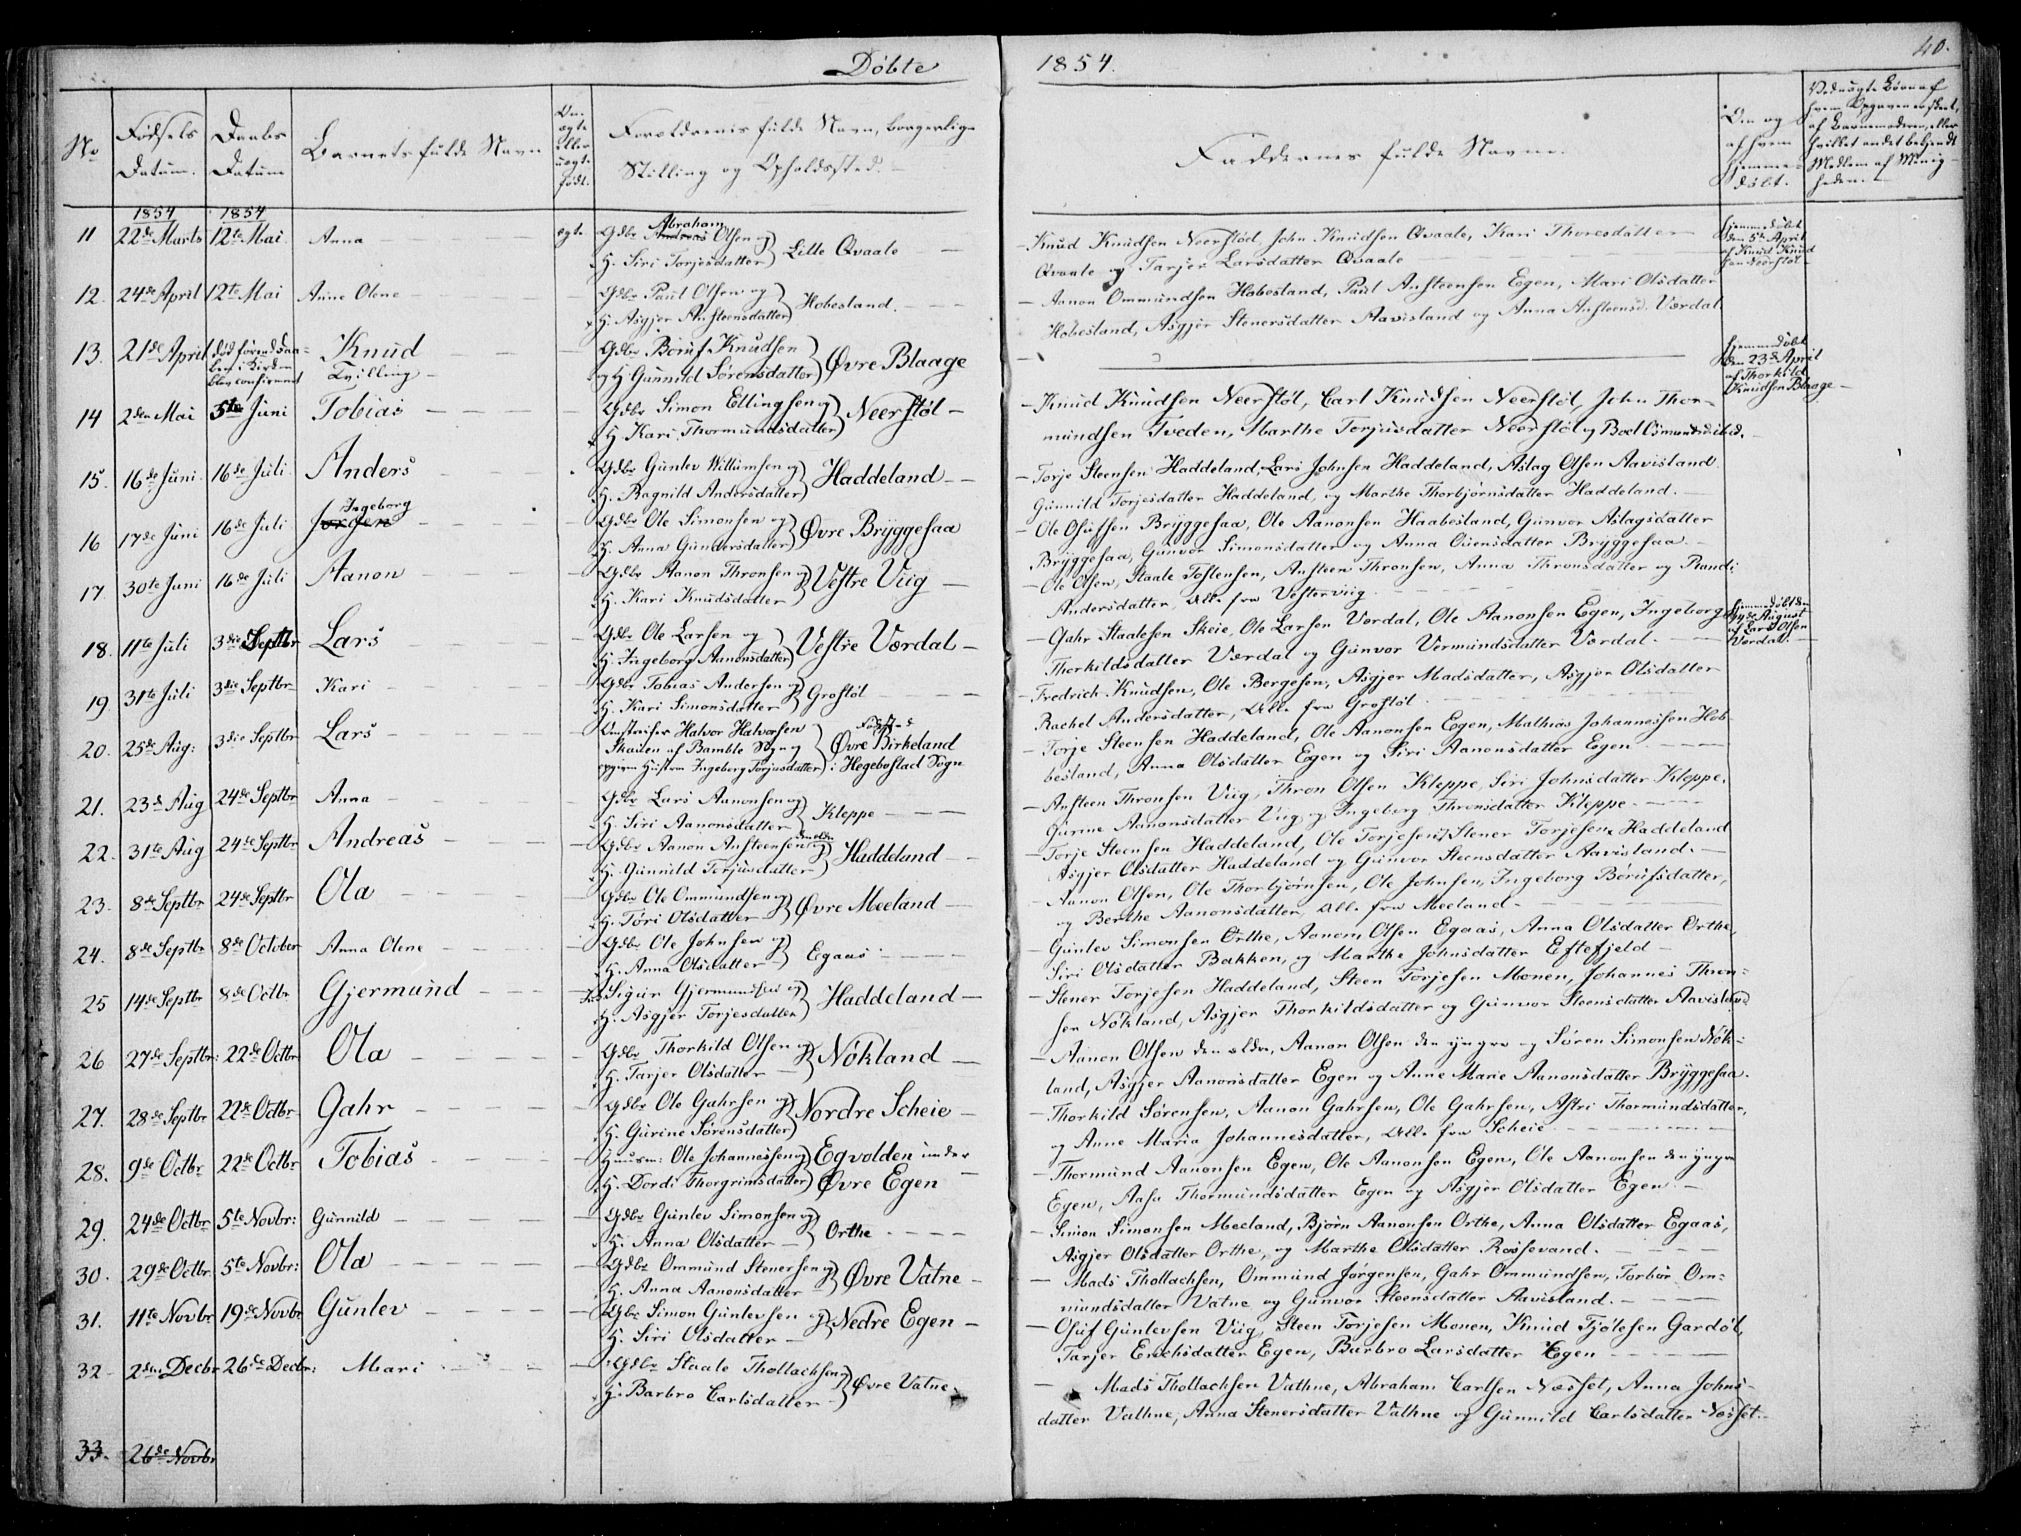 Døbte
1854.
40.
No
Fødsels Datum.
Daabs Datum
Barnets fulde Navn
Om ægte eller uægte født.
Forældrenes fulde Navn, borgerlige Stilling og Opholdssted.
Faddernes fulde Navne.
Om og af hvem hjemmedøbt.
11 1854 22de Marts 1854 12te Mai. Anna ægte Gdbr Abraham Andreas Olsen og
H. Siri Torjesdatter Lille Qvaale
Knud Knudsen Neerstøl, John Knudsen Qvaale, Kari Thoresdatter
Qvaale og Tarjer Larsdatter Qvaale
hjemmedøbt den 5te April af Knud Knudsen Neerstøl
12. 24de April 12te Mai Anne Olene Gdbr Paul Olsen og
H. Asgjer Ansteensdatter Hobesland.
Aanon Ommundsen Hobesland, Paul Ansteensen Egen, Mari Olsdatter
Hobesland, Asgjer Stenersdatter Aavisland og Anna Ansteensd. Værdal
13. 21de April død førend Daaben i Kirken blev confirmeret Knud Tvilling Gdbr Boruf Knudsen
og H Gunnild Sørensdatter Øvre Blaage
hjemmedøbt den 23de April af Thorkild Knudsen Blaage
14 2den Mai 5te Juni Tobias Gdbr Simon Ellingsen og
H. Kari Thormundsdatter Neerstøl
Knud Knudsen Neerstøl, Carl Knudsen Neerstøl, John Thor-
mundsen Tveden, Marthe Torjusdatter Neerstøl og Boel Osmundsd ibid.
15. 16de Juni 16de Juli Anders Gdbr Gunlev Willumsen og
H. Ragnild Andersdatter Haddeland
Torje Steensen Haddeland, Lars Johnsen Haddeland, Aslag Olsen Aavisland
Gunnild Torjesdatter Haddeland, og Marthe Thorbjørnsdatter Haddeland.
16 17de Juni 16de Juli Ingeborg Jørgen Gdbr Ole Simonsen og
H. Anna Gundersdatter Øvre Bryggesaa
Ole Osufsen Bryggesaa, Ole Aanonsen Haabesland, Gunvor Aslagsdatter
Bryggesaa, Gunvor Simonsdatter og Anna Ouensdatter Bryggesaa.
17. 30te Juni 16de Juli Aanon Gdbr Aanon Thronsen og
H. Kari Knudsdatter Vestre Viig
Ole Olsen, Staale Tostensen, Ansteen Thronsen, Anna Thronsdatter og Randi
Andersdatter, Alle fra Vestreviig.
18. 11te Juli 3die Septbr Lars Gdbr Ole Larsen og
H. Ingeborg Aanonsdatter Vestre Værdal
Gahr Staalesen Skeie, Ole Larsen Værdal, Ole Aanonsen Egen, Ingeborg
Thorkildsdatter Værdal og Gunvor Vermundsdatter Værdal.
hjemmedøbt den August af Lars Olsen Værdal.
19. 31te Juli 3die Septbr Kari Gdbr Tobias Andersen og
H. Kari Simonsdatter Grostøl
Fredrich Knudsen, Ole Bergesen, Asgjer Madsdatter, Asgjer Olsdatter
Rachel Andersdatter, Alle fra Grostøl
20. 25de Aug: 3die Septbr Lars Omstreifer Halvor Halvorsen
Skauen af Bamble Sogn og
opgiven Hustru Ingeborg Torjusdatter Øvre Birkeland i Hegebostad Sogn
Torje Steensen Haddeland, Ole Aanonsen Egen, Mathias Johannessen Hob-
besland, Anna Olsdatter Egen og Siri Aanonsdatter Egen
21. 23de Aug 24de Septbr Anna Gdbr Lars Aanonsen og
H. Siri Aanonsdatter Kleppe
Ansteen Thronsen Viig, Thron Olsen Kleppe, Siri Johnsdatter Kleppe,
Gurine Aanonsdatter Viig og Ingeborg Thronsdatter Kleppe.
22. 31te Aug 24de Septbr Andreas Gdbr Aanon Ansteensen den eldre og
H. Gunnild Torjusdatter Haddeland
Torje Steensen Haddeland, Ole Torjesen, Stener Torjesen Haddeland
Asgjer Olsdatter Haddeland og Gunvor Steensdatter Aavisland.
23. 8de Septbr 24de Septbr Ola Gdbr Ole Ommundsen og
H. Tøri Olsdatter Øvre Meeland
Aanon Olsen, Ole Thorbjørnsen, Ole Johnsen, Ingeborg Børufsdatter,
og Berthe Aanonsdatter, Alle fra Meeland.
24. 8de Septbr 8de October Anna Olene Gdbr Ole Johnsen og
H. Anna Olsdatter Egaas
Gunlev Simonsen Orthe, Aanon Olsen Egaas, Anna Olsdatter Orthe,
Siri Olsdatter Bakken, og Marthe Johnsdatter Eftefjeld
25 14de Septbr 8de Octbr Gjermund Sigur Gjermundsen og
H. Asgjer Torjesdatter Haddeland
Stener Torjesen Haddeland, Steen Torjesen Monen, Johannes Thron-
sen Nökland, Asgjer Thorkildsdatter og Gunvor Steensdatter Aavisland
26 27de Septbr: 22de Octbr Ola Gdbr Thorkild Olsen og
H. Tarjer Olsdatter Nökland
Aanon Olsen den eldre, Aanon Olsen den yngre og Søren Simonsen Nök-
land, Asgjer Aanonsdatter Egen og Anne Marie Aanonsdatter Bryggesaa.
27. 28de Septbr 22de Octbr Gahr Gdbr Ole Gahrsen og
H. Gurine Sørensdatter Nordre Scheie
Thorkild Sørensen, Aanon Gahrsen, Ole Gahrsen, Astri Thormundsdatter,
og Anne Maria Johannesdatter, Alle fra Scheie
28. 9de Octbr 22de Octbr Tobias Huusm: Ole Johannessen og
H. Dordi Thorgrimsdatter Egvolden under Øvre Egen
Thormund Aanonsen Egen, Ole Aanonsen Egen, Ole Aanonsen den yngre
Egen, Aasa Thormundsdatter Egen og Asgjer Olsdatter Egen
29. 24de Octbr 5te Novbr: Gunnild Gdbr Gunlev Simonsen og
H. Anna Olsdatter Orthe
Simon Simonsen Meeland, Bjørn Aanonsen Orthe, Anna Olsdatter Egaas,
Asgjer Olsdatter Orthe, og Marthe Olsdatter Rossevand.
30. 29de Octbr 5te Novbr: Ola Gdbr Ommund Stenersen og
H. Anna Aanonsdatter Øvre Vatne
Mads Thollachsen, Ommund Jørgensen, Gahr Ommundsen, Torbør Om-
mundsdatter Vatne og Gunvor Steensdatter Aavisland.
31. 11te Novbr 19de Novbr Gunlev Gdbr Simon Gunlevsen og
H. Siri Olsdatter Nedre Egen
Osuf Gunlevsen Viig, Steen Torjesen Monen, Knud Tjølesen Gardøl,
Tarjer Erichsdatter Egen, Barbro Larsdatter Egen
32 2den Decbr 26de Decbr: Mari Gdbr Staale Thollachsen og
H. Barbro Carlsdatter Øvre Vatne
Mads Thollachsen Vathne, Abraham Carlsen Næsset, Anna Johns-
datter Vathne, Anna Stenersdatter Vathne og Gunnild Carlsdatter Næsset.
33. 26de Novbr